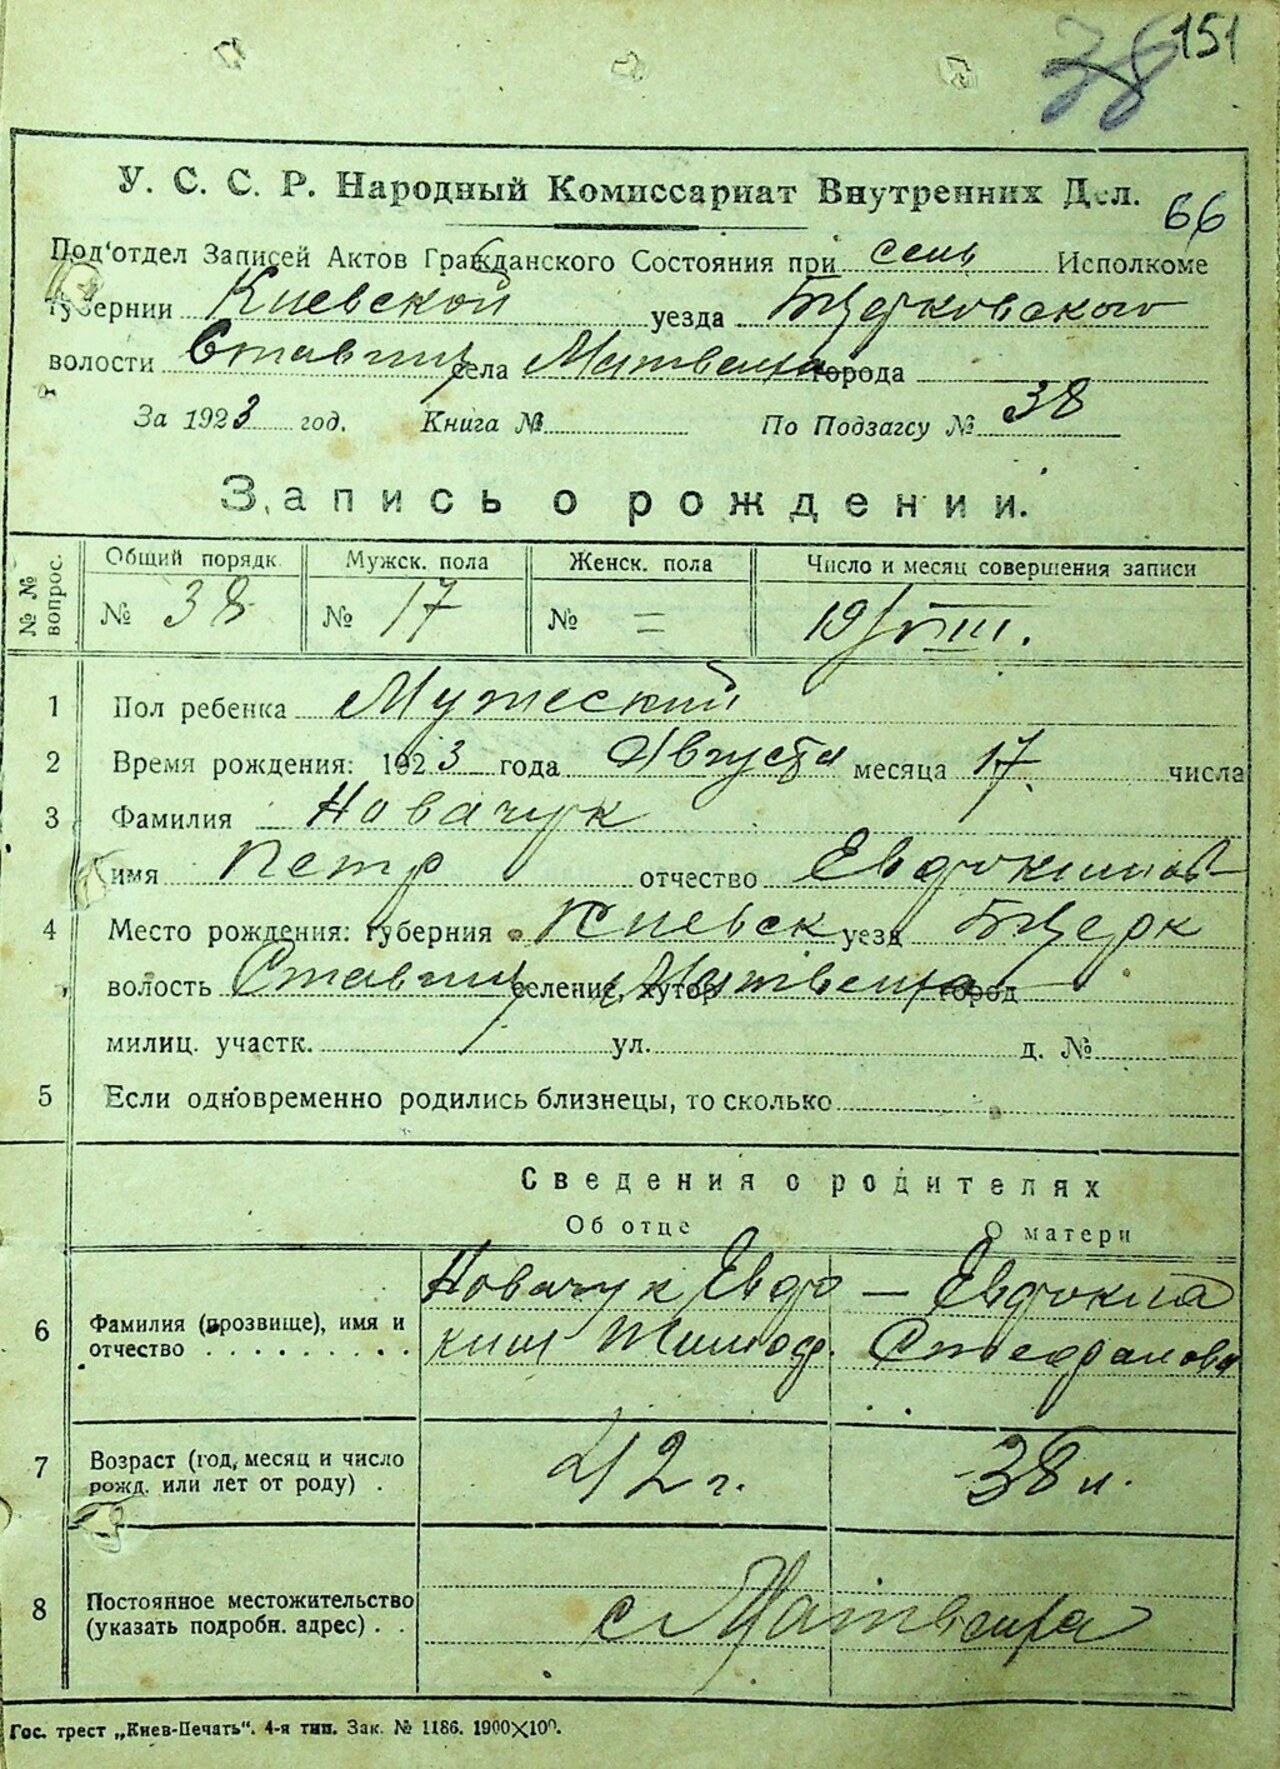 38 151
У. С. С. Р. Народный Комиссариат Внутренних Дел.
66
Под'отдел Записей Актов Гражданского Состояния при сель Исполкоме
губернии Киевской уезда БЦерковского
волости Ставищ села Матвеиха города
За 1923 год. Книга № По Подзагсу № 38
Запись о рождении.
№№ вопрос. Общий порядк. Мужск. пола Женск. пола Число и месяц совершения записи
№ 38 № 17 № = 19/VIII.
1 Пол ребенка Мужеский
2 Время рождения: 1923 года Августа месяца 17 числа
3 Фамилия Новачук
имя Петр отчество Евдокимов
4 Место рождения: губерния Киевск уезд БЦерк
волость Ставищ селение, хутор Матвеиха город
милиц. участк. ул. д. №
5 Если одновременно родились близнецы, то сколько
Сведения о родителях
Об отце О матери
Новачук Евдо — Евдокиа
6 Фамилия (прозвище), имя и
отчество . . . . . . . . . ким Тимоф. Стефанова
7 Возраст (год, месяц и число
рожд. или лет от роду) . 42 г. 38 л.
8 Постоянное местожительство
(указать подробн. адрес) . . с Матвеиха
Гос. трест „Киев-Печать“. 4-я тип. Зак. № 1186. 1900×100.